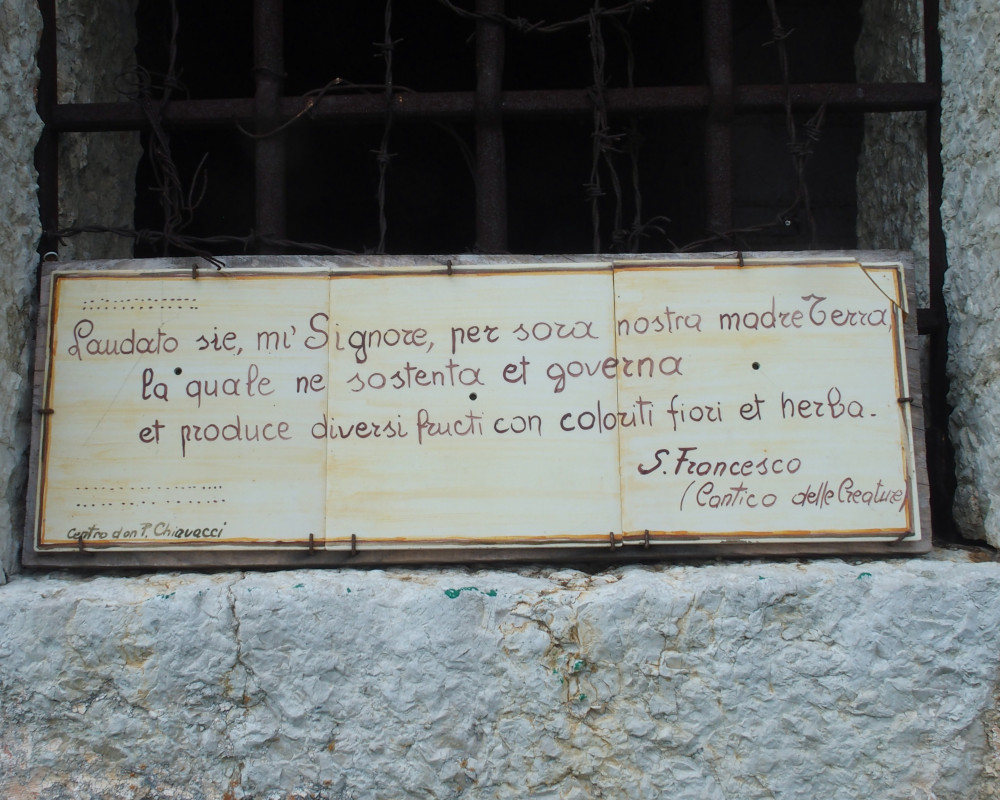 Laudato sie, mi' Signore, per sora nostra madre Terra,
la quale ne sostenta et governa
et produce diversi fructi con coloriti fiori et herba.
S. Francesco
(Cantico delle Creature)
centro don P. Chiavacci